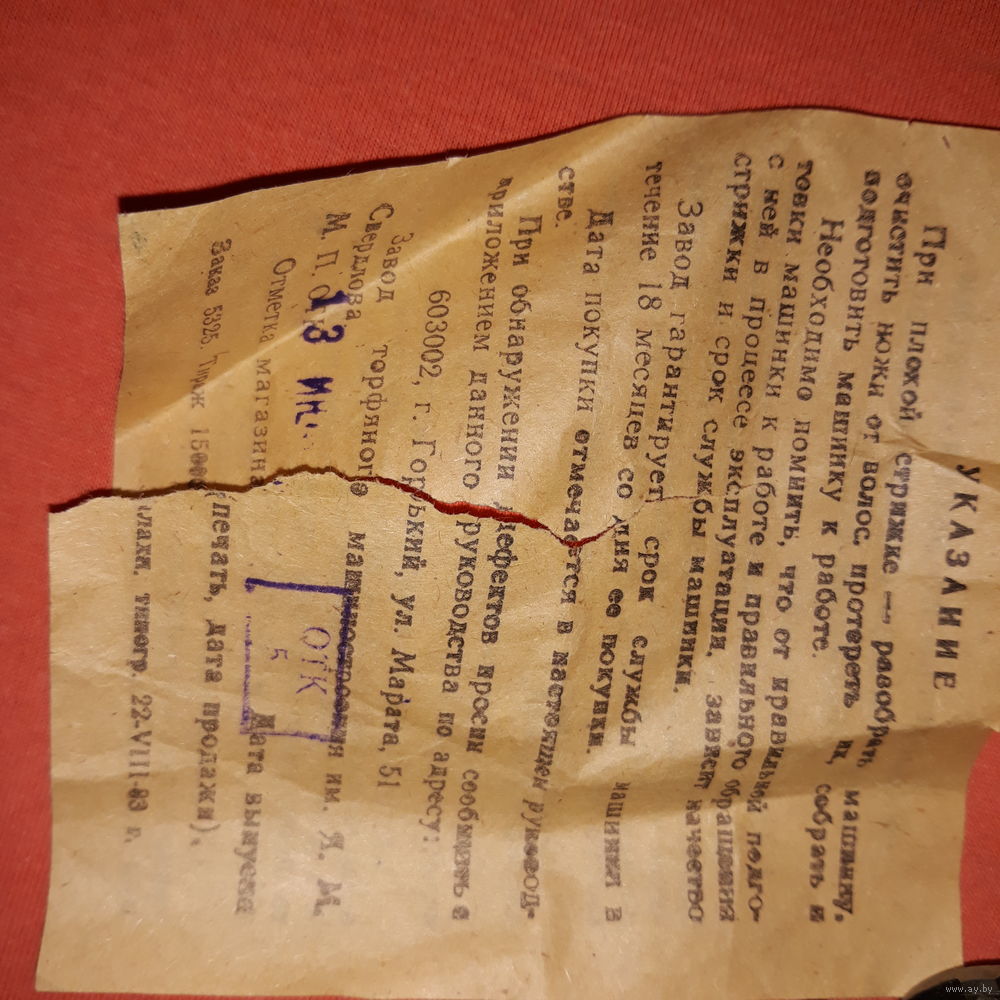 УКАЗАНИЕ
При плохой стрижке — разобрать машинку,
очистить ножи от волос, протереть их, собрать и
подготовить машинку к работе.
Необходимо помнить, что от правильной подго-
товки машинки к работе и правильного обращения
с ней в процессе эксплуатации, зависит качество
стрижки и срок службы машинки.
Завод гарантирует срок службы машинки в
течение 18 месяцев со дня ее покупки.
Дата покупки отмечается в настоящем руковод-
стве.
При обнаружении дефектов просим сообщить с
приложением данного руководства по адресу:
603002, г. Горький, ул. Марата, 51
Завод торфяного машиностроения им. Я. М.
Свердлова
М. П. Дата выпуска
13
ОТК
5
Отметка магазина (печать, дата продажи).
Заказ 5325 Тираж 22-VIII-83 г.
www.ay.by